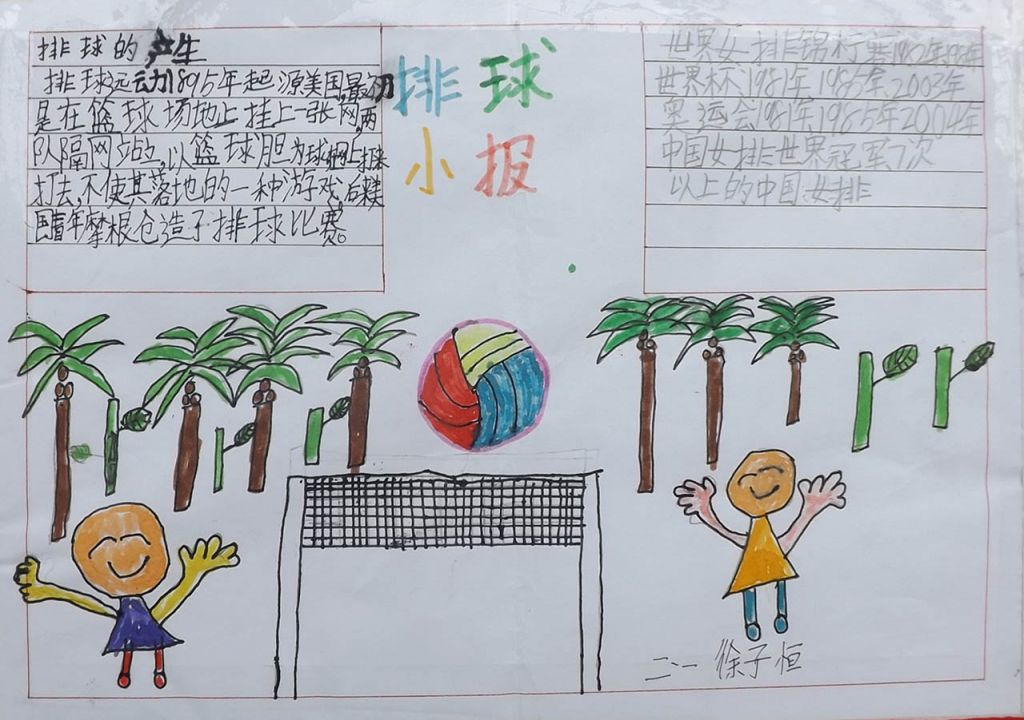 排球的产生
排球远动1895年起源美国,最初
是在篮球场地上挂上一张网,两
队隔网站立,以篮球胆为球网上打来
打去,不使其落地的一种游戏,
国青年摩根仓造了排球比赛。
排球
小报
世界女排锦标赛1982年1986年
世界杯1981年1985年2003年
奥运会1981年1985年2004年
中国女排世界冠军7次
以上的中国女排
二·一 徐子恒